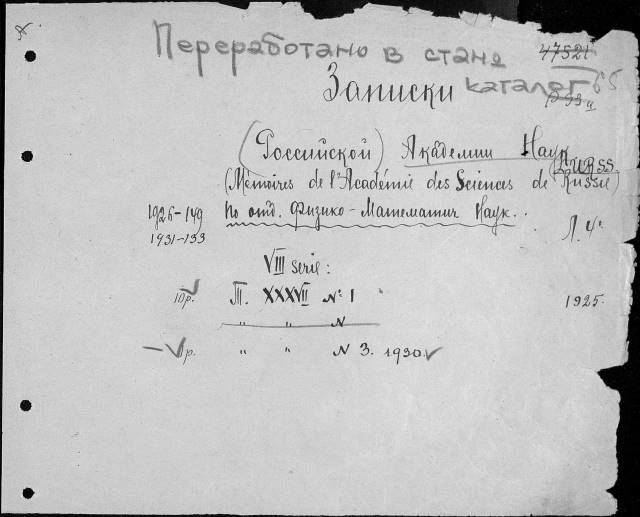 Переработано в стана
47521
Записки каталог 65
(Российской) Академии Наук
(Mémoires de l'Académie des Sciences de Russie)
1926-149 по отд. Физико-Математич Наук.
1931-133
VIII serie:
Т. XXXVII № 1 1925.
" " N
" " N 3. 1930.